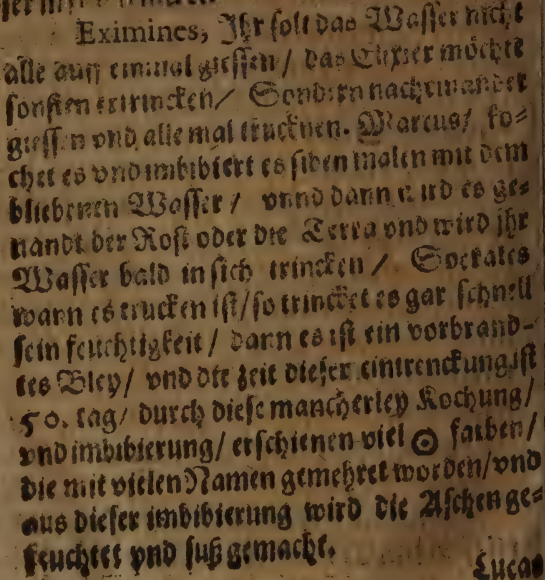 Eximines, Ihr solt das Wasser nicht
alle auff einmal giessen / das Elixier möchte
sonsten ertrincken / Sondern nacheinander
giessen vnd alle mal trucknen. Marcus / ko⸗
chet es vnd imbibiert es siben malen mit dem
bliebenen Wasser / vnnd dann wird es ge⸗
nandt der Rost oder die Terra vnd wird jhr
Wasser bald in sich trincken / Socrates
wann es trucken ist / so trincket es gar schnell
sein feuchtigkeit / dann es ist ein vorbrand⸗
tes Bley / vnd die zeit dieser eintrenckung ist
50. tag / durch diese mancherley Kochung /
vnd imbibierung / erschienen viel ☉ farben /
die mit vielen Namen gemehret worden / vnd
aus dieser imbibierung wird die Aschen ge⸗
feuchtet vnd suß gemacht.
Lucas